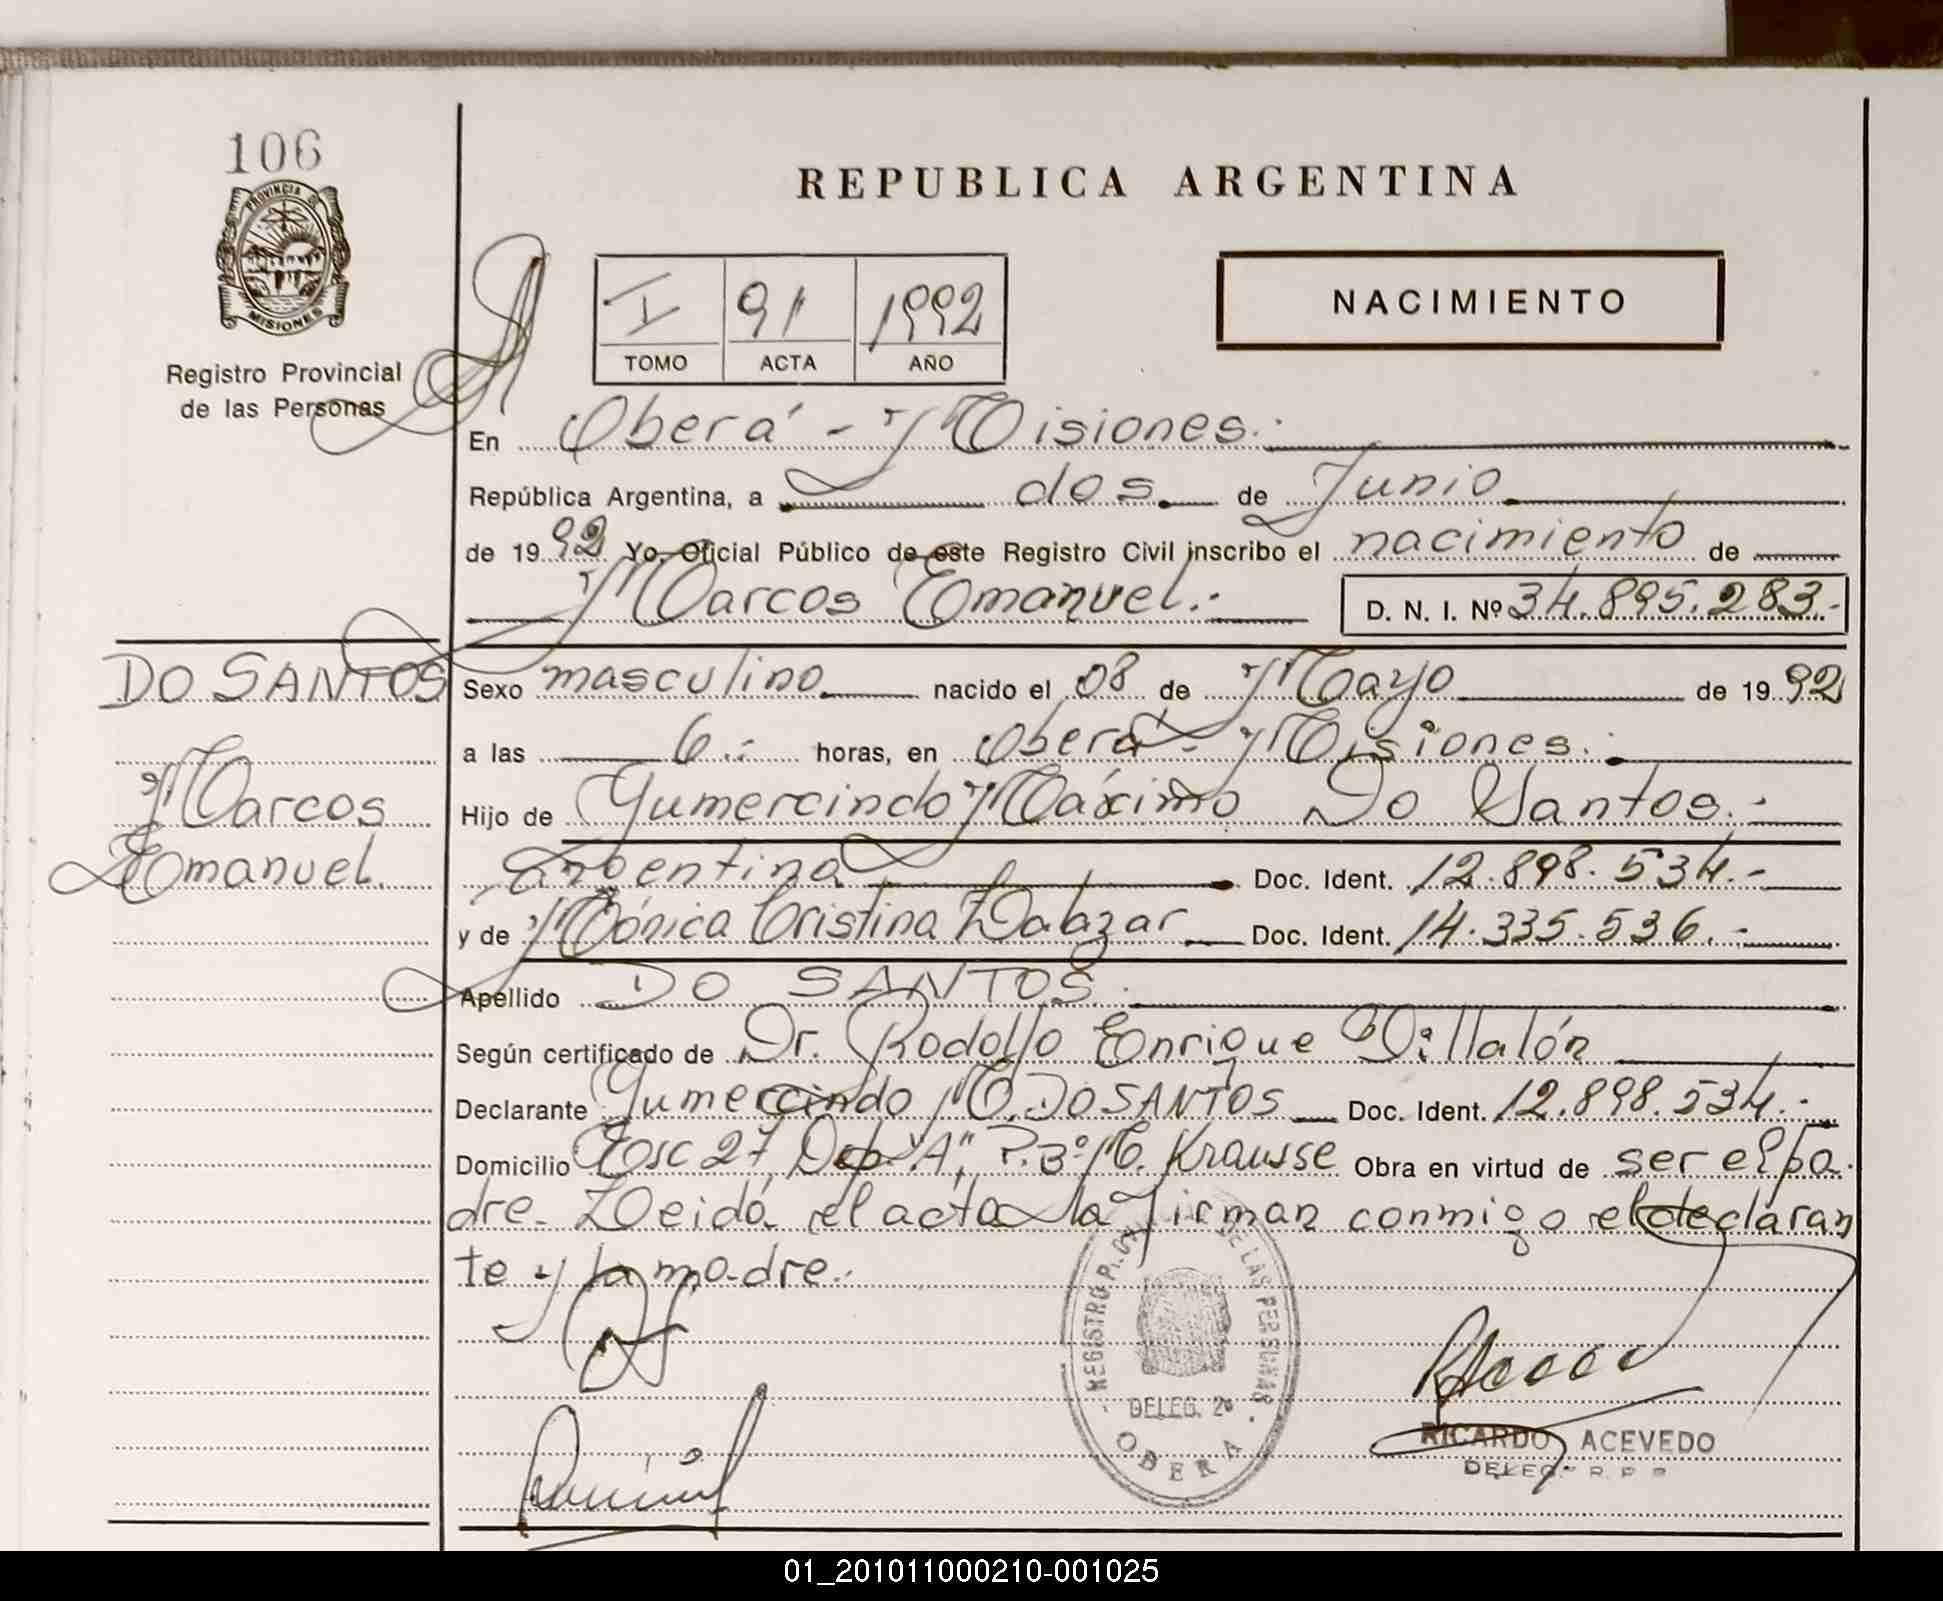 106
PROVINCIA DE
MISIONES
Registro Provincial
de las Personas
REPUBLICA ARGENTINA
I 91 1992
TOMO ACTA AÑO
NACIMIENTO
En Oberá - Misiones.-
República Argentina, a dos de Junio
de 1992 Yo, Oficial Público de este Registro Civil inscribo el nacimiento de
Marcos Emanuel.- D. N. I. Nº 34.895.283.-
DO SANTOS
Marcos
Emanuel.
Sexo masculino nacido el 08 de Mayo de 1992
a las 6.- horas, en Oberá - Misiones.-
Hijo de Gumercindo Máximo Do Santos.-
Argentina Doc. Ident. 12.898.534.-
y de Mónica Cristina Zalazar Doc. Ident. 14.335.536.-
Apellido DO SANTOS.
Según certificado de Dr. Rodolfo Enrique Villalón
Declarante Gumercindo M. DO SANTOS Doc. Ident. 12.898.534.-
Domicilio Esc 27, Dep. "A", P. Bº M. Krausse Obra en virtud de ser el pa-
dre. Leida el acta la firman conmigo el declaran
te y la madre.-
REGISTRO DE LAS PERSONAS
DELEG. 2ª
OBERA
RICARDO ACEVEDO
DELEG. R. P. P.
01_201011000210-001025